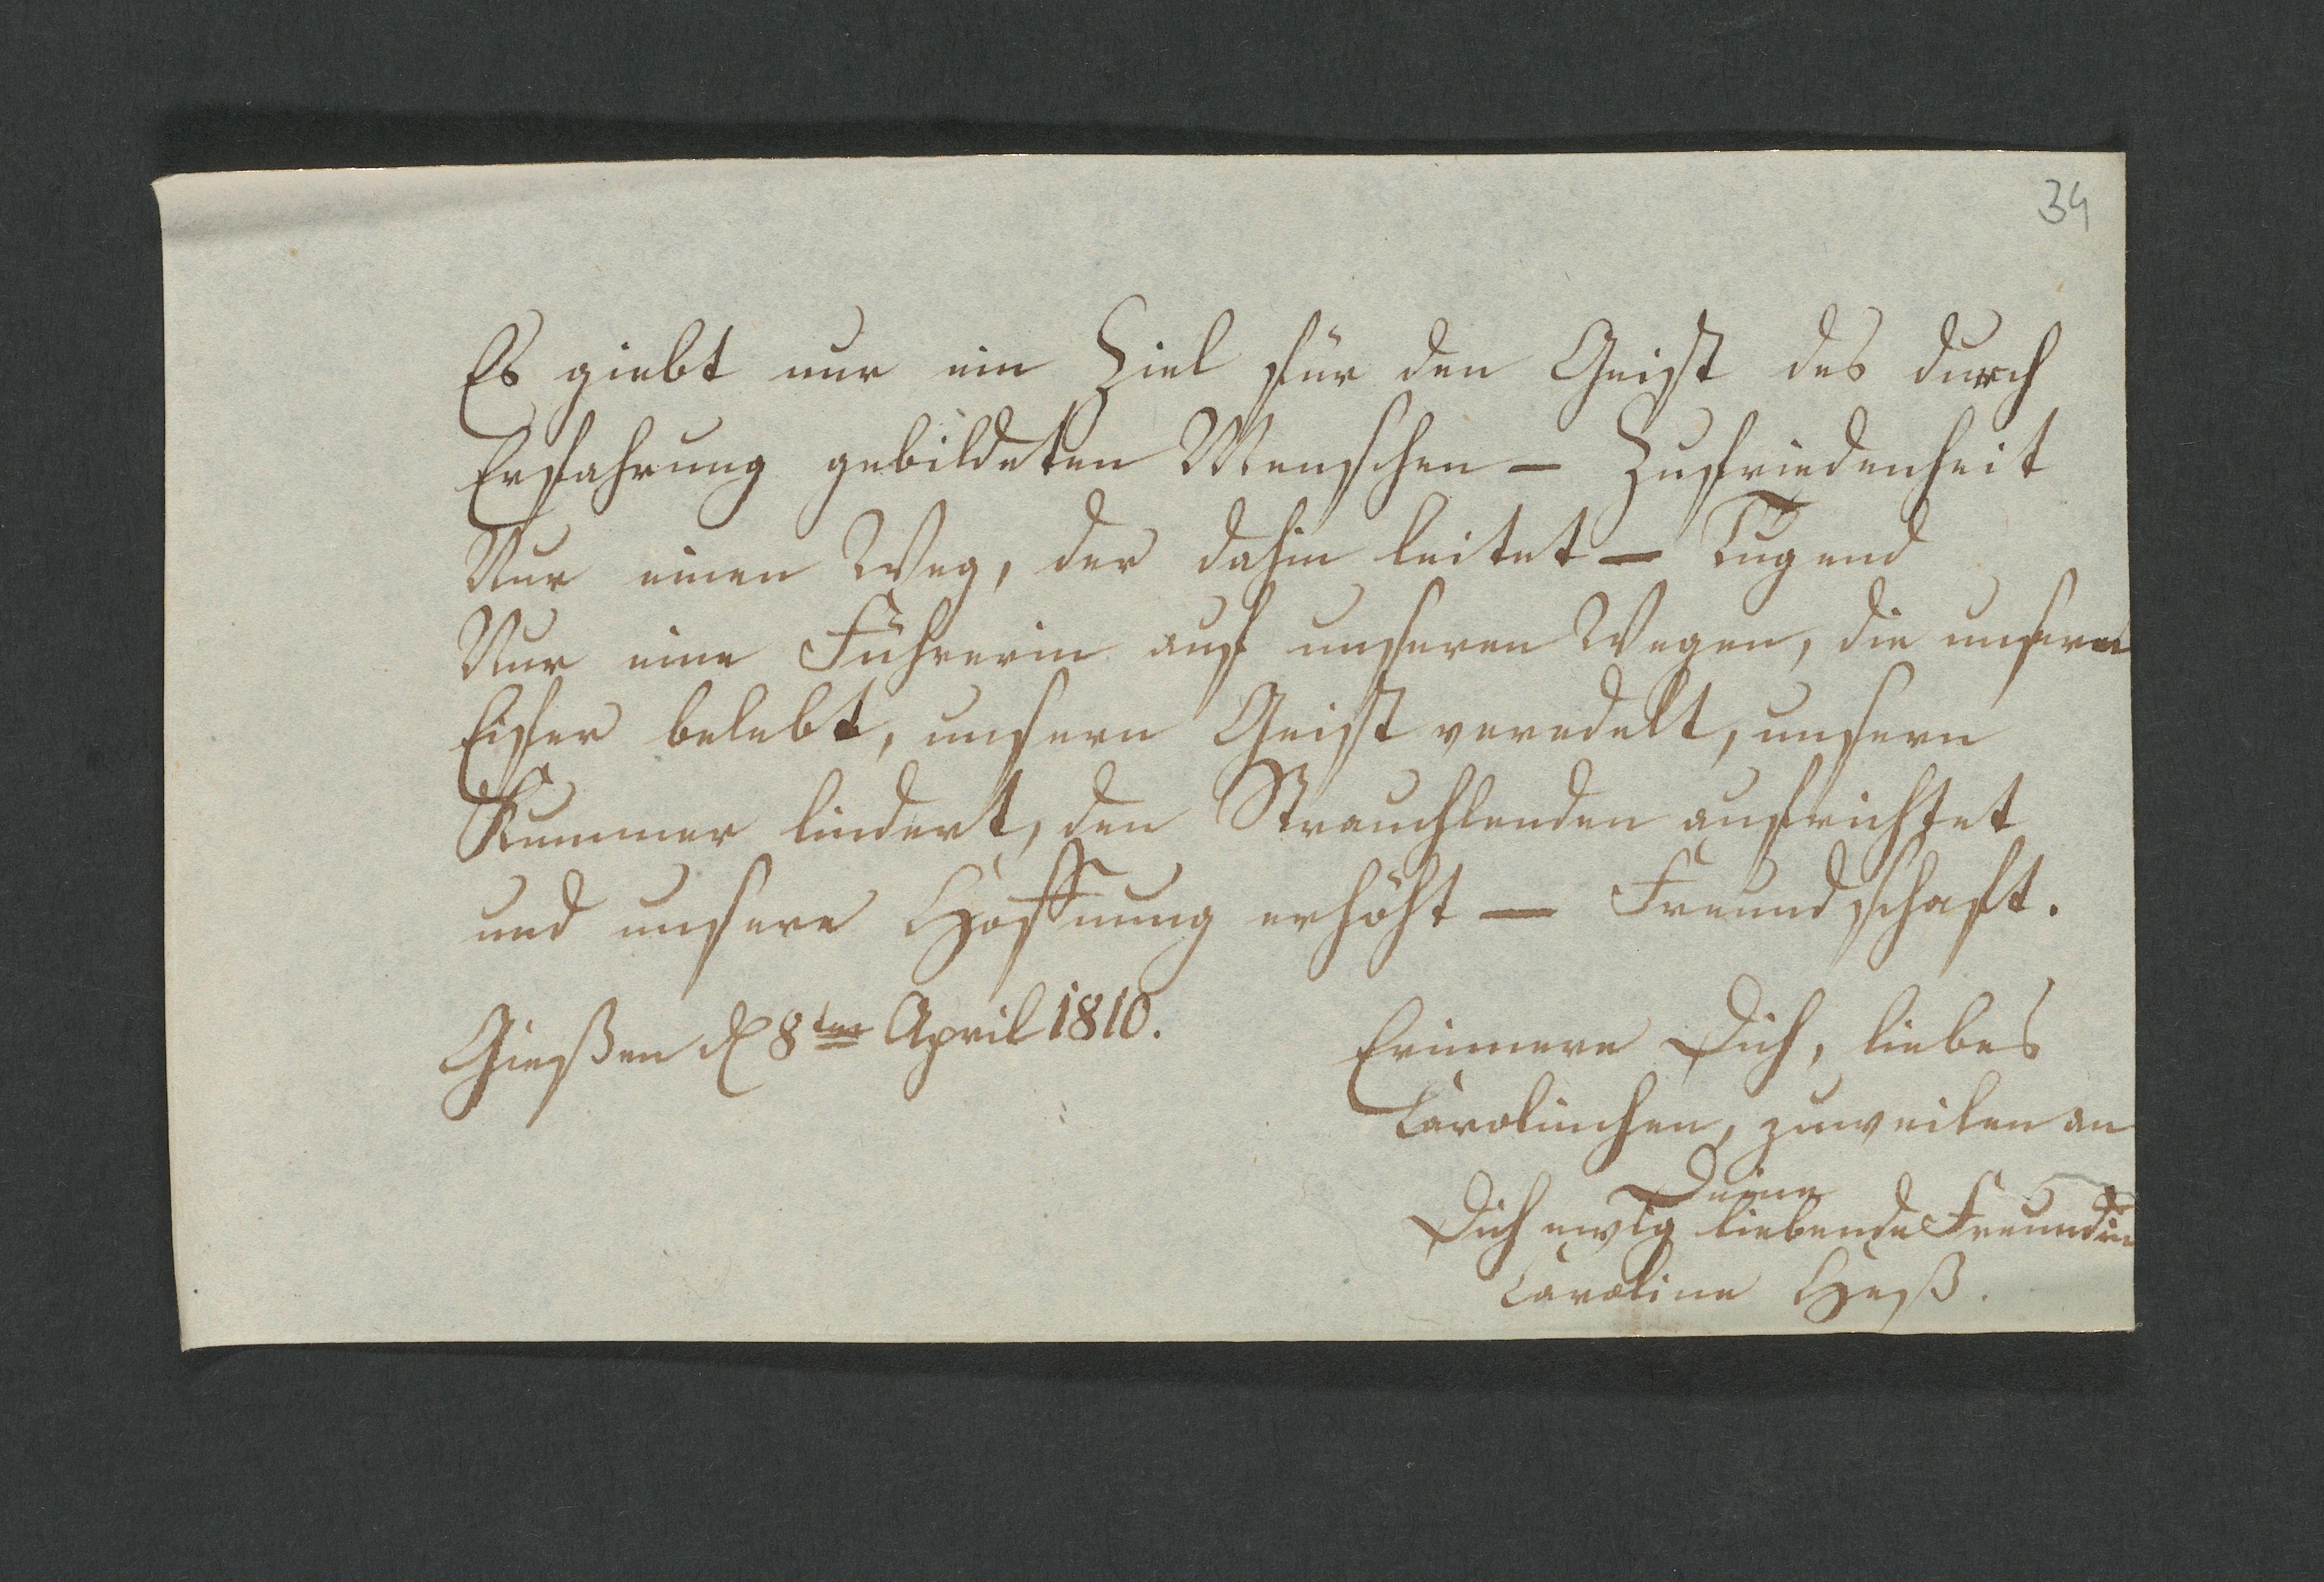 34
Es giebt nur ein Ziel für den Geist des durch
Erfahrung gebildeten Menschen – Zufriedenheit
Nur einen Weg, der dahin leitet – Tugend
Nur eine Führerin auf unseren Wegen, die unsern
Eifer belebt, unsern Geist veredelt, unsern
Kummer lindert, den Strauchlenden aufrichtet
und unsere Hoffnung erhöht – Freundschaft.
Gießen d 8ten April 1810.
Erinnere Dich, liebes
Carolinchen, zuweilen an
Deine
Dich ewig liebende Freundin
Caroline Heß.